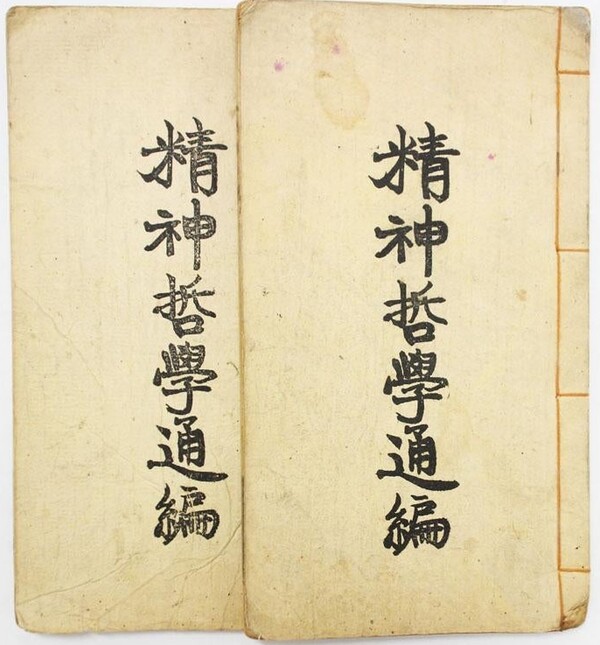 精神哲學通編
精神哲學通編